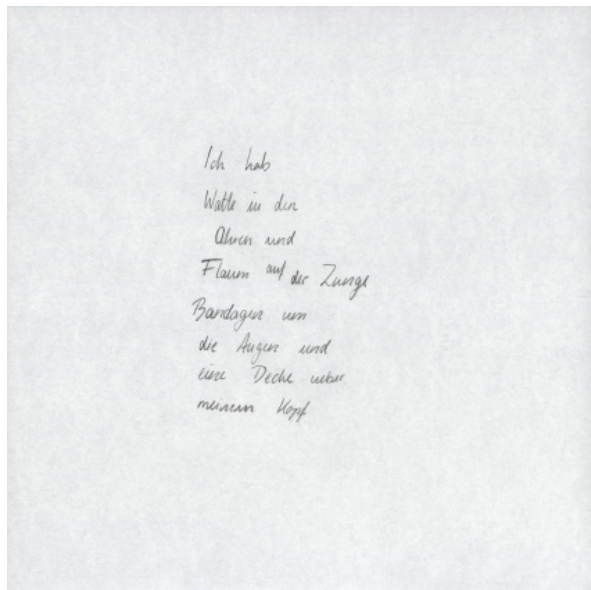 Ich hab
Watte in den
Ohren und
Flaum auf der Zunge
Bandagen um
die Augen und
eine Decke ueber
meinem Kopf